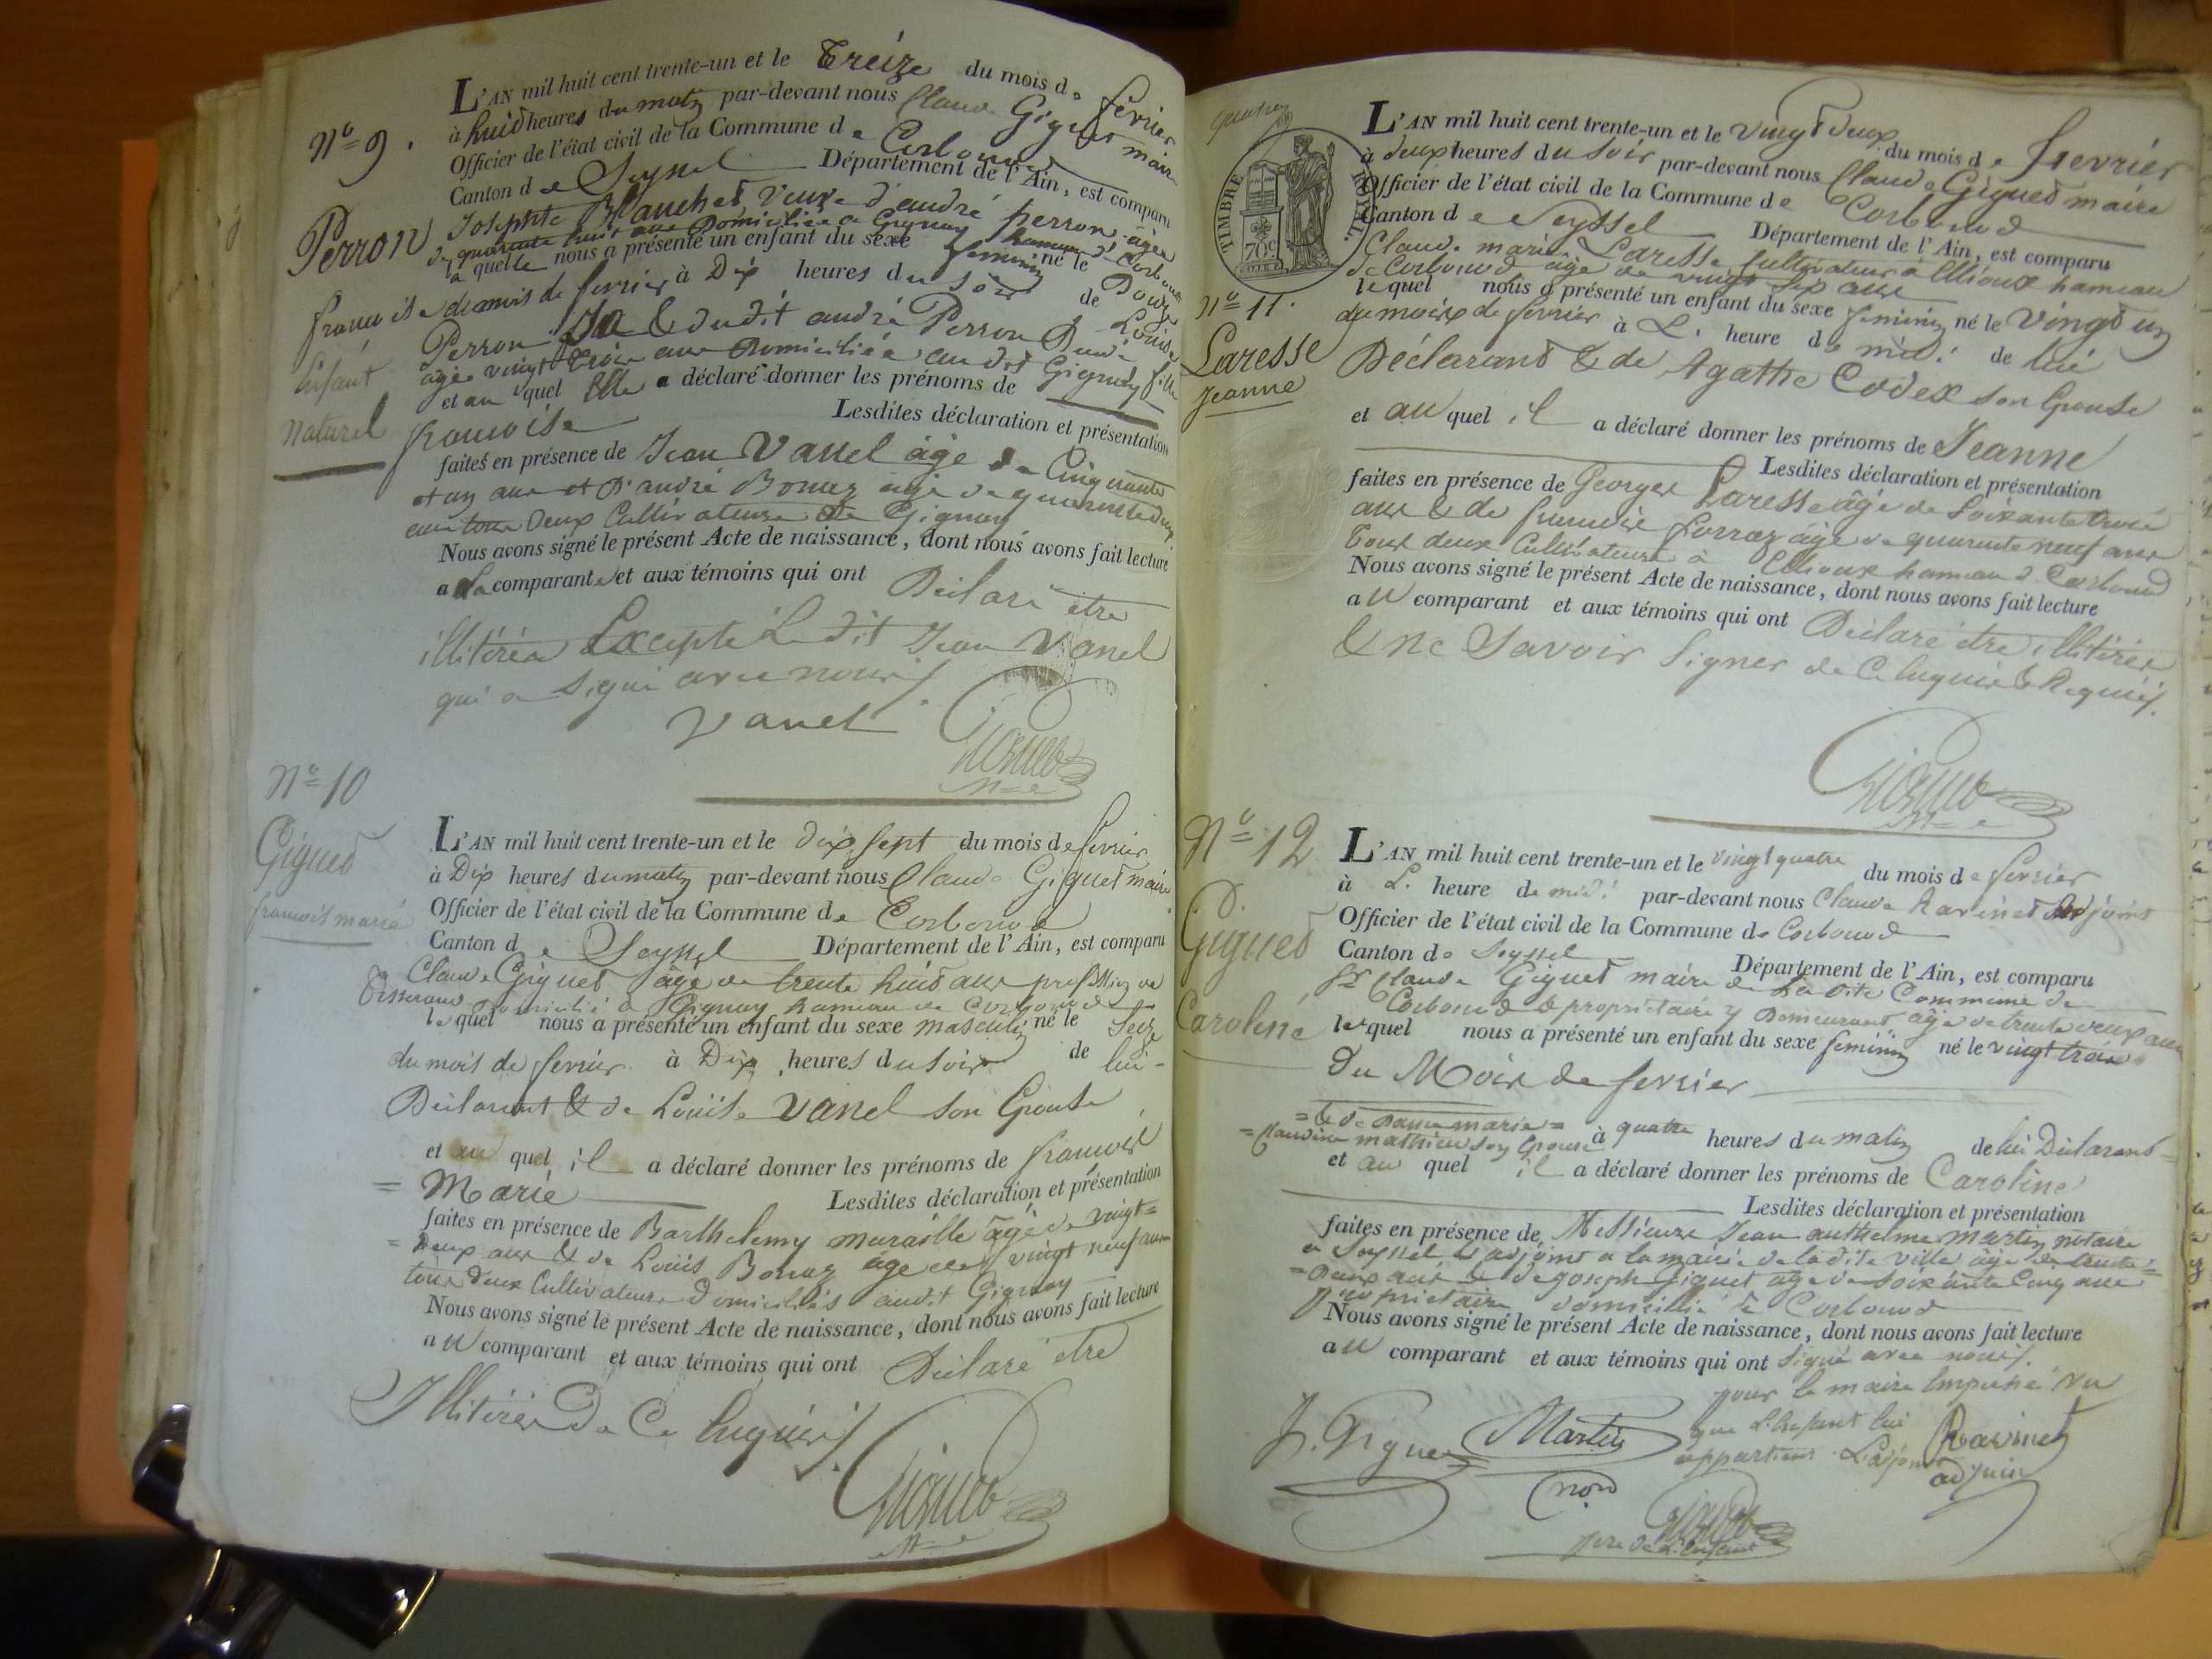 Nº 9.
Perron
françoise
Enfant
Naturel
L'AN mil huit cent trente-un et le Treize du mois de février
à huit heures du matin par-devant nous Claude Giguet maire
Officier de l'état civil de la Commune de Corbonod
Canton de Seyssel Département de l'Ain, est comparu
Josephte Blanchet veuve d'andré perron âgée
de quarante huit ans Domiciliée a Gignay hameau de Corbonod
la quelle nous a présenté un enfant du sexe feminin né le Douze
du mois de fevrier à Dix heures du soir de Louise
Perron Sa & dudit andré Perron
âgée vingt trois ans Domiciliée au dit Gignay fille
et au quel Elle a déclaré donner les prénoms de
françoise Lesdites déclaration et présentation
faites en présence de Jean Vanel âgé de Cinquante
et un ans et d'andré Bonaz agé de quarante deux
ans tous Deux Cultivateurs de Gignay
Nous avons signé le présent Acte de naissance, dont nous avons fait lecture
a la comparante et aux témoins qui ont Déclaré être
illitérés Excepté Le dit Jean Vanel
qui a signé avec nous
Vanel
Giguet
Nº 10
Giguet
françois marie
L'AN mil huit cent trente-un et le dix sept du mois de fevrier
à Dix heures du matin par-devant nous Claude Giguet maire
Officier de l'état civil de la Commune de Corbonod
Canton de Seyssel Département de l'Ain, est comparu
Claude Giguet âgé de trente huit ans profession de
Tisserand domicilié à Gignay hameau de Corbonod
le quel nous a présenté un enfant du sexe masculin né le Seize
du mois de fevrier à Dix heures du soir de lui-
Déclarant & de Louise Vanel son Epouse
et au quel il a déclaré donner les prénoms de françois
= Marie Lesdites déclaration et présentation
faites en présence de Barthelemy muraille âgé de vingt=
= Deux ans & de Louis Bonaz âgé de vingt neuf ans
tous deux Cultivateurs Domiciliés audit Gignay
Nous avons signé le présent Acte de naissance, dont nous avons fait lecture
au comparant et aux témoins qui ont Déclaré être
Illitérés De Ce Enquis
Giguet
TIMBRE ROYAL
70c
Nº 11.
Laresse
Jeanne
L'AN mil huit cent trente-un et le vingt deux du mois de fievrier
à deux heures du soir par-devant nous Claude Giguet maire
Officier de l'état civil de la Commune de Corbonod
Canton de Seyssel Département de l'Ain, est comparu
Claude marie Laresse Cultivateur à Ellioux hameau
de Corbonod âgé de vingt six ans
lequel nous a présenté un enfant du sexe feminin né le vingt un
du mois de fevrier à L. heure de midi de lui
Déclarant & de Agathe Codex son Epouse
et au quel il a déclaré donner les prénoms de Jeanne
Lesdites déclaration et présentation
faites en présence de Georges Laresse âgé de Soixante trois
ans & de françois Lorraz âgé de quarante neuf ans
Tous deux Cultivateurs à Ellioux hameau d. Corbonod
Nous avons signé le présent Acte de naissance, dont nous avons fait lecture
au comparant et aux témoins qui ont Déclaré être illitérés
& Ne Savoir Signer de Ce Enquis & Requis
Giguet
Nº 12
Giguet
Caroline
L'AN mil huit cent trente-un et le vingt quatre du mois de fevrier
à L. heure de midi par-devant nous Claude Ravinet adjoint
Officier de l'état civil de la Commune de Corbonod
Canton de Seyssel Département de l'Ain, est comparu
Sr Claude Giguet maire de La dite Commune de
Corbonod & propriétaire y Demeurant âgé de trente deux ans
lequel nous a présenté un enfant du sexe feminin né le vingt trois
Du Mois de fevrier
à quatre heures du matin de lui Déclarant=
=& de Dame marie=
=Claudine mathieu son Epouse
et au quel il a déclaré donner les prénoms de Caroline
Lesdites déclaration et présentation
faites en présence de Messieurs Jean anthelme Martin notaire
a Seyssel & adjoint a la mairie de ladite ville âgé de trente=
=Deux ans & de joseph Giguet âgé de soixante Cinq ans
proprietaire domicilié à Corbonod
Nous avons signé le présent Acte de naissance, dont nous avons fait lecture
au comparant et aux témoins qui ont Signé avec nous.
pour le maire Empeché vu
que L'Enfant lui
appartient L'adjoint
J. Giguet Martin Ravinet
adjoint
Giguet
pere de L'enfant